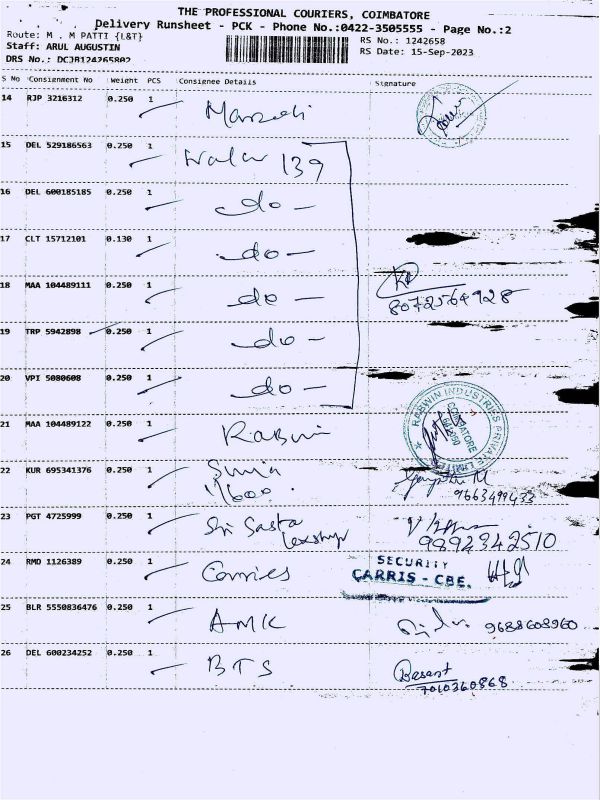 THE PROFESSIONAL COURIERS, COIMBATORE
Delivery Runsheet - PCK - Phone No.:0422-3505555 - Page No.:2
Route: M . M PATTI {L&T}
RS No.: 1242658
Staff: ARUL AUGUSTIN
RS Date: 15-Sep-2023
DRS No.: DCJB124265802
S No Consignment No Weight PCS Consignee Details Signature
14 RJP 3216312 0.250 1
15 DEL 529186563 0.250 1 139
16 DEL 600185185 0.250 1 -do-
17 CLT 15712101 0.130 1 -do-
18 MAA 104489111 0.250 1 -do- 8072564928
19 TRP 5942898 0.250 1 -do-
20 VPI 5080608 0.250 1 -do-
RABWIN INDUSTRIES PRIVATE LIMITED
COIMBATORE
21 MAA 104489122 0.250 1 Rabwin
22 KUR 695341376 0.250 1 9663499433
23 PGT 4725999 0.250 1 Sri Sasta 9892342510
24 RMD 1126389 0.250 1 SECURITY
CARRIS - CBE.
25 BLR 5550836476 0.250 1 AMK 9688608960
26 DEL 600234252 0.250 1 BTS
7010360868